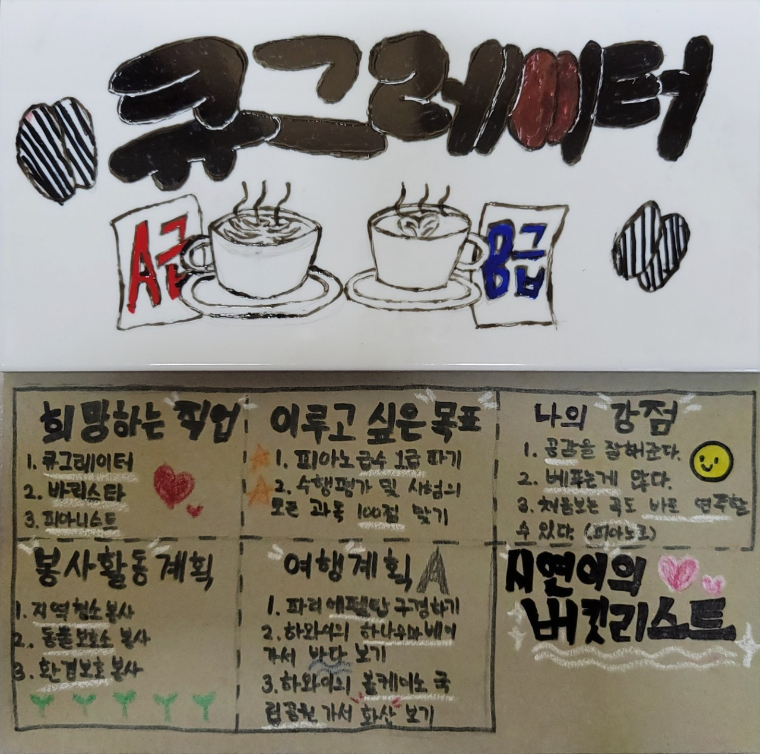 큐그레이터
A급
B급
희망하는 직업
1. 큐그레이터
2. 바리스타
3. 피아니스트
이루고 싶은 목표
1. 피아노 급수 1급 따기
2. 수행평가 및 시험의
모든 과목 100점 맞기
나의 강점
1. 공감을 잘해준다.
2. 베푸는게 많다.
3. 처음보는 곡도 바로 연주할
수 있다. (피아노로)
봉사활동계획
1. 지역청소봉사
2. 동물보호소 봉사
3. 환경보호봉사
여행계획
1. 파리 에펠탑 구경하기
2. 하와이의 하나우마베이
가서 바다 보기
3. 하와이의 볼케이노 국
립공원 가서 화산 보기
시연이의
버킷리스트